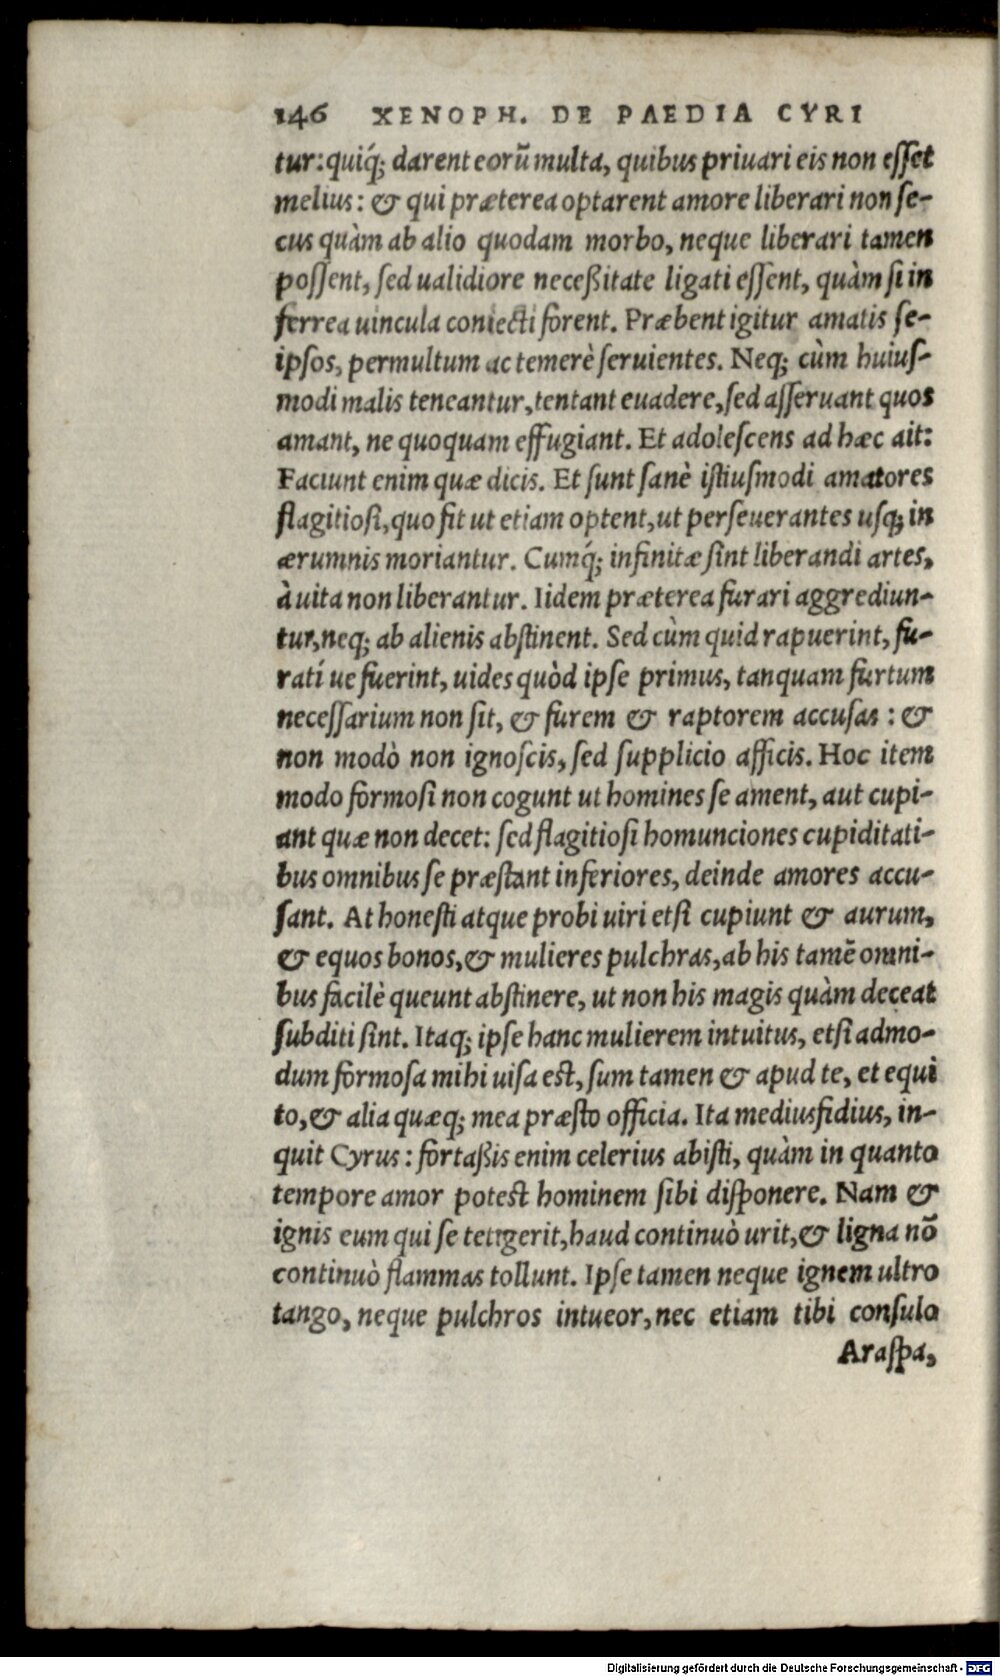 146 XENOPH. DE PAEDIA CYRI
tur: quiq́; darent eorū multa, quibus priuari eis non esset
melius: & qui præterea optarent amore liberari non se-
cus quàm ab alio quodam morbo, neque liberari tamen
possent, sed ualidiore neceßitate ligati essent, quàm si in
ferrea uincula coniecti forent. Præbent igitur amatis se-
ipsos, permultum ac temerè seruientes. Neq; cùm huius-
modi malis teneantur, tentant euadere, sed asseruant quos
amant, ne quoquam effugiant. Et adolescens ad hæc ait:
Faciunt enim quæ dicis. Et sunt sanè istiusmodi amatores
flagitiosi, quo fit ut etiam optent, ut perseuerantes usq; in
ærumnis moriantur. Cumq́; infinitæ sint liberandi artes,
à uita non liberantur. Iidem præterea furari aggrediun-
tur, neq; ab alienis abstinent. Sed cùm quid rapuerint, fu-
ratí ue fuerint, uides quòd ipse primus, tanquam furtum
necessarium non sit, & furem & raptorem accusas: &
non modò non ignoscis, sed supplicio afficis. Hoc item
modo formosi non cogunt ut homines se ament, aut cupi-
ant quæ non decet: sed flagitiosi homunciones cupiditati-
bus omnibus se præstant inferiores, deinde amores accu-
sant. At honesti atque probi uiri etsi cupiunt & aurum,
& equos bonos, & mulieres pulchras, ab his tamē omni-
bus facilè queunt abstinere, ut non his magis quàm deceat
subditi sint. Itaq; ipse hanc mulierem intuitus, etsi admo-
dum formosa mihi uisa est, sum tamen & apud te, et equi
to, & alia quæq; mea præsto officia. Ita mediusfidius, in-
quit Cyrus: fortaßis enim celerius abisti, quàm in quanto
tempore amor potest hominem sibi disponere. Nam &
ignis eum qui se tetigerit, haud continuò urit, & ligna nō
continuò flammas tollunt. Ipse tamen neque ignem ultro
tango, neque pulchros intueor, nec etiam tibi consulo
Araspa,
Digitalisierung gefördert durch die Deutsche Forschungsgemeinschaft - DFG